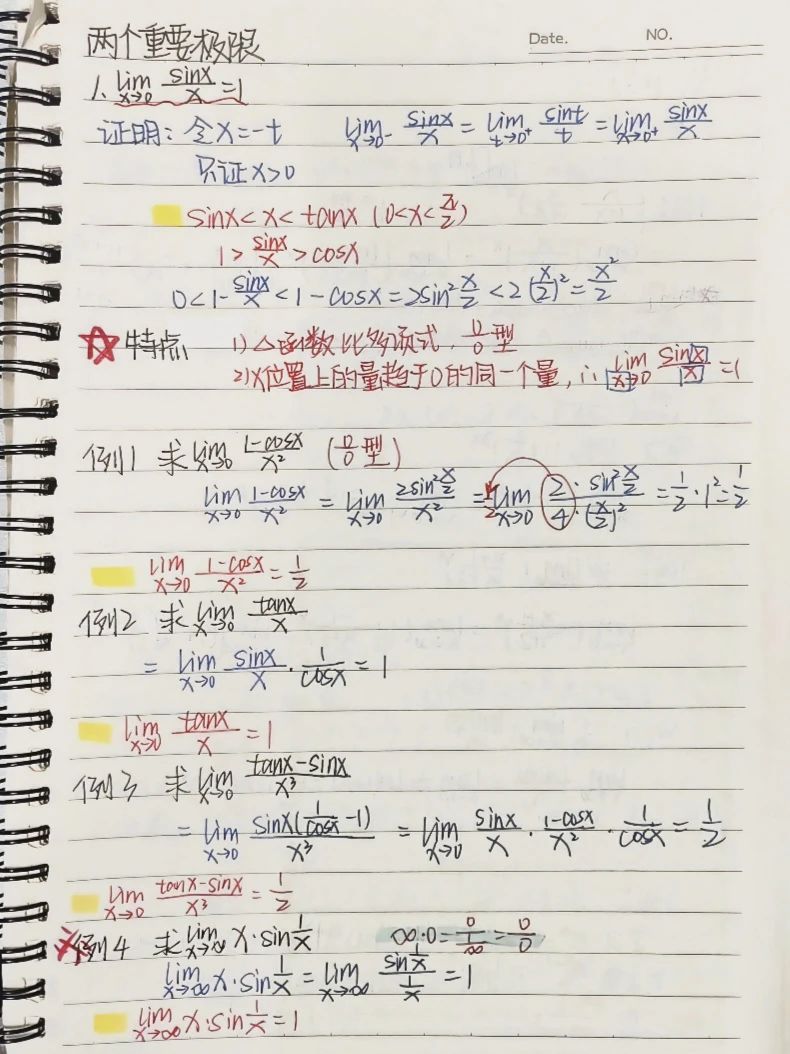 Date. NO.
两个重要极限
1. lim x→0 sinx/x = 1
证明: 令x=-t lim x→0⁻ sinx/x = lim t→0⁺ sint/t = lim x→0⁺ sinx/x
只证x>0
sinx < x < tanx (0<x<π/2)
1 > sinx/x > cosx
0 < 1 - sinx/x < 1 - cosx = 2sin² x/2 < 2(x/2)² = x²/2
☆特点 1) △函数比多项式, 0/0 型
2) x位置上的量趋于0的同一个量, ∴ lim x→0 sinx/x = 1
例1 求 lim x→0 1-cosx/x² (0/0 型)
lim x→0 1-cosx/x² = lim x→0 2sin² x/2 / x² = 1/2 lim x→0 2/4 · sin² x/2 / (x/2)² = 1/2 · 1² = 1/2
lim x→0 1-cosx/x² = 1/2
例2 求 lim x→0 tanx/x
= lim x→0 sinx/x · 1/cosx = 1
lim x→0 tanx/x = 1
例3 求 lim x→0 tanx-sinx/x³
= lim x→0 sinx(1/cosx - 1)/x³ = lim x→0 sinx/x · 1-cosx/x² · 1/cosx = 1/2
lim x→0 tanx-sinx/x³ = 1/2
例4 求 lim x→∞ x·sin 1/x ∞·0 = 0/(1/∞) = 0/0
lim x→∞ x·sin 1/x = lim x→∞ sin 1/x / 1/x = 1
lim x→∞ x·sin 1/x = 1